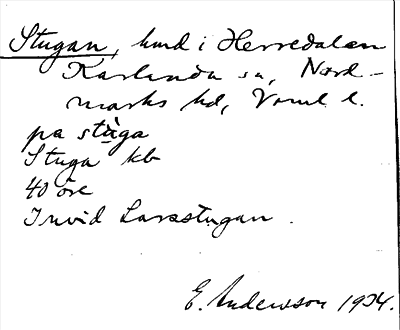 Stugan, hmd i Herredalen
Karlanda sn, Nord-
marks hd, Vrml l.
på ståga
Stuga kb
40 öre
Invid Larsstugan.
E. Andersson 1924.